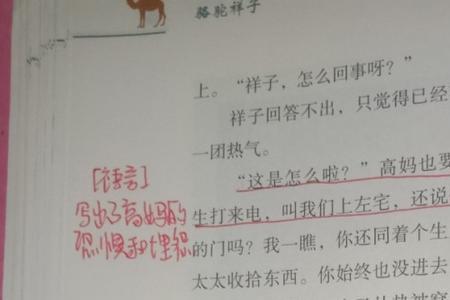 骆驼祥子
上。“祥子，怎么回事呀？”
祥子回答不出，只觉得已经
一团热气。
“这是怎么啦？”高妈也要
生打来电，叫我们上左宅，还说
的门吗？我一瞧，你还同着个生
太太收拾东西。你始终也没进去
[语言]
写出了高妈的
恐惧和埋怨